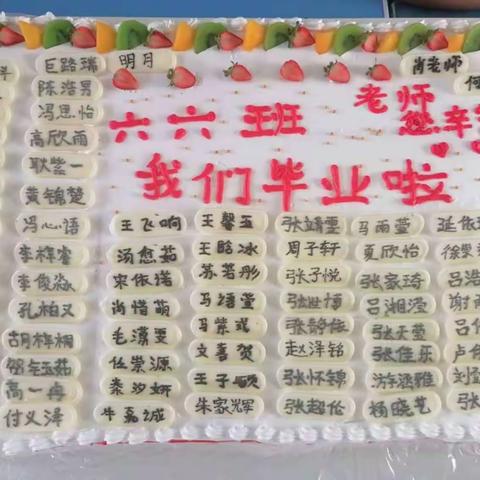 巨路瑞
明月
肖老师
陈浩男
冯思怡
高欣雨
耿紫一
黄锦楚
冯心语
李梓睿
李俊淼
孔柏又
胡梓桐
高一冉
付义泽
六六班
老师
您辛
我们毕业啦
王飞响
王馨玉
张靖雯
马雨萱
汤愈茹
王晗冰
周子轩
夏欣怡
宋依诺
苏若彤
张子悦
张家琦
肖惜萌
张世博
吕湘滢
毛潇雯
马紫彧
张静依
张天莹
伍崇源
文喜贺
赵泽铭
张佳乐
秦汐妍
王子硕
张怀锦
游涵雅
牛嘉诚
朱家辉
张超伦
杨晓艺